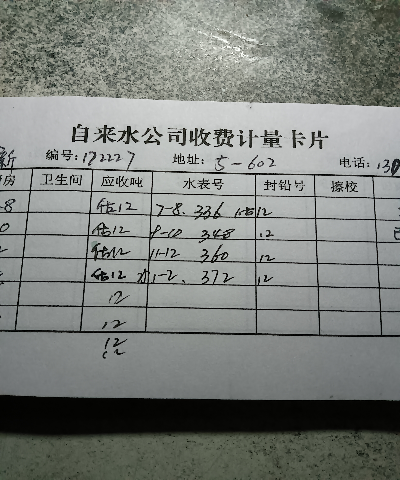 自来水公司收费计量卡片
新 编号:172227 地址: 5-602 电话:13
房 卫生间 应收吨 水表号 封铅号 擦校
8 估12 7-8. 336 估12
0 估12 9-10 348 12
2 估12 11-12 360 12
估12 水1-2. 372 12
12
12
12
12